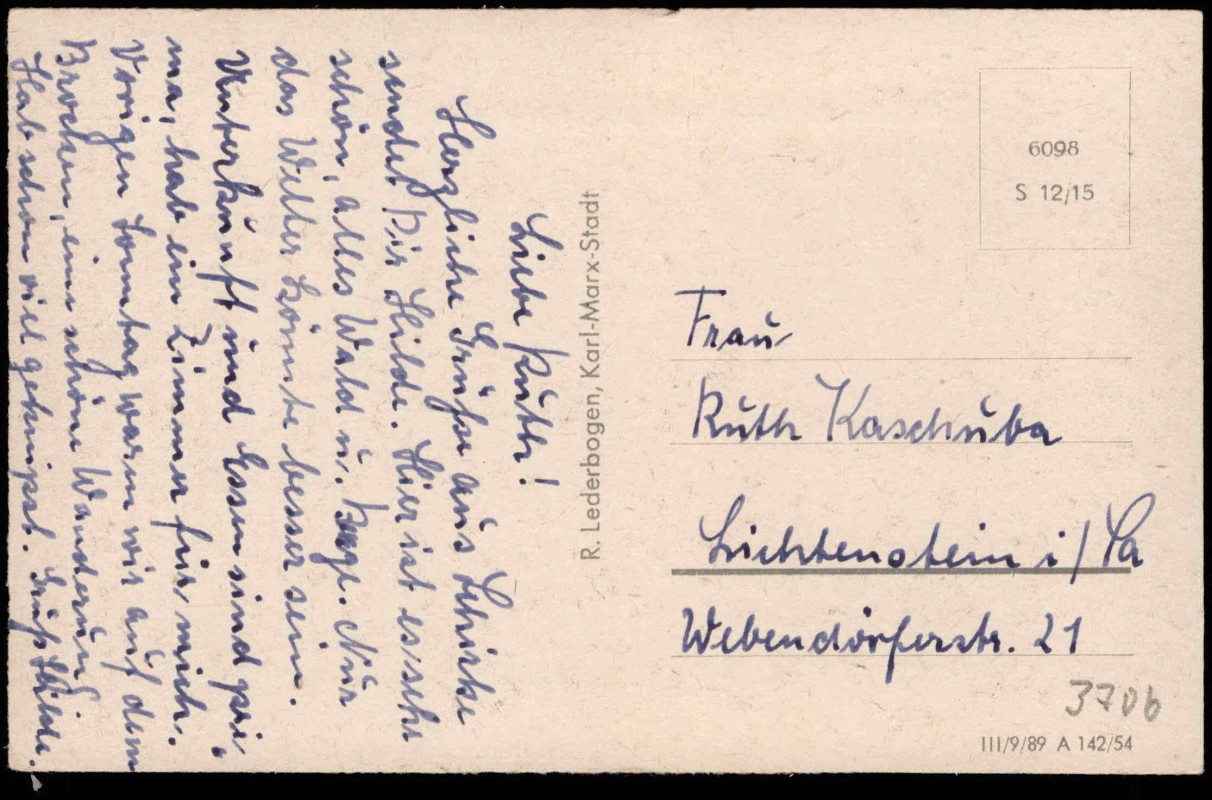 Liebe Ruth!
Herzliche Grüße aus Schirke
sendet Dir Hilde. Hier ist es sehr
schön, alles Wald u. Berge. Nur
das Wetter könnte besser sein.
Unterkunft und Essen sind pri-
ma, hab ein Zimmer für mich.
Vorigen Sonntag waren wir auf dem
Brocken, eine schöne Wanderung
Hab schon viel geknipst. Gruß Hilde.
R. Lederbogen, Karl-Marx-Stadt
6098
S 12/15
Frau
Ruth Kaschuba
Lichtenstein i/Sa
Webendörferstr. 21
3706
III/9/89 A 142/54